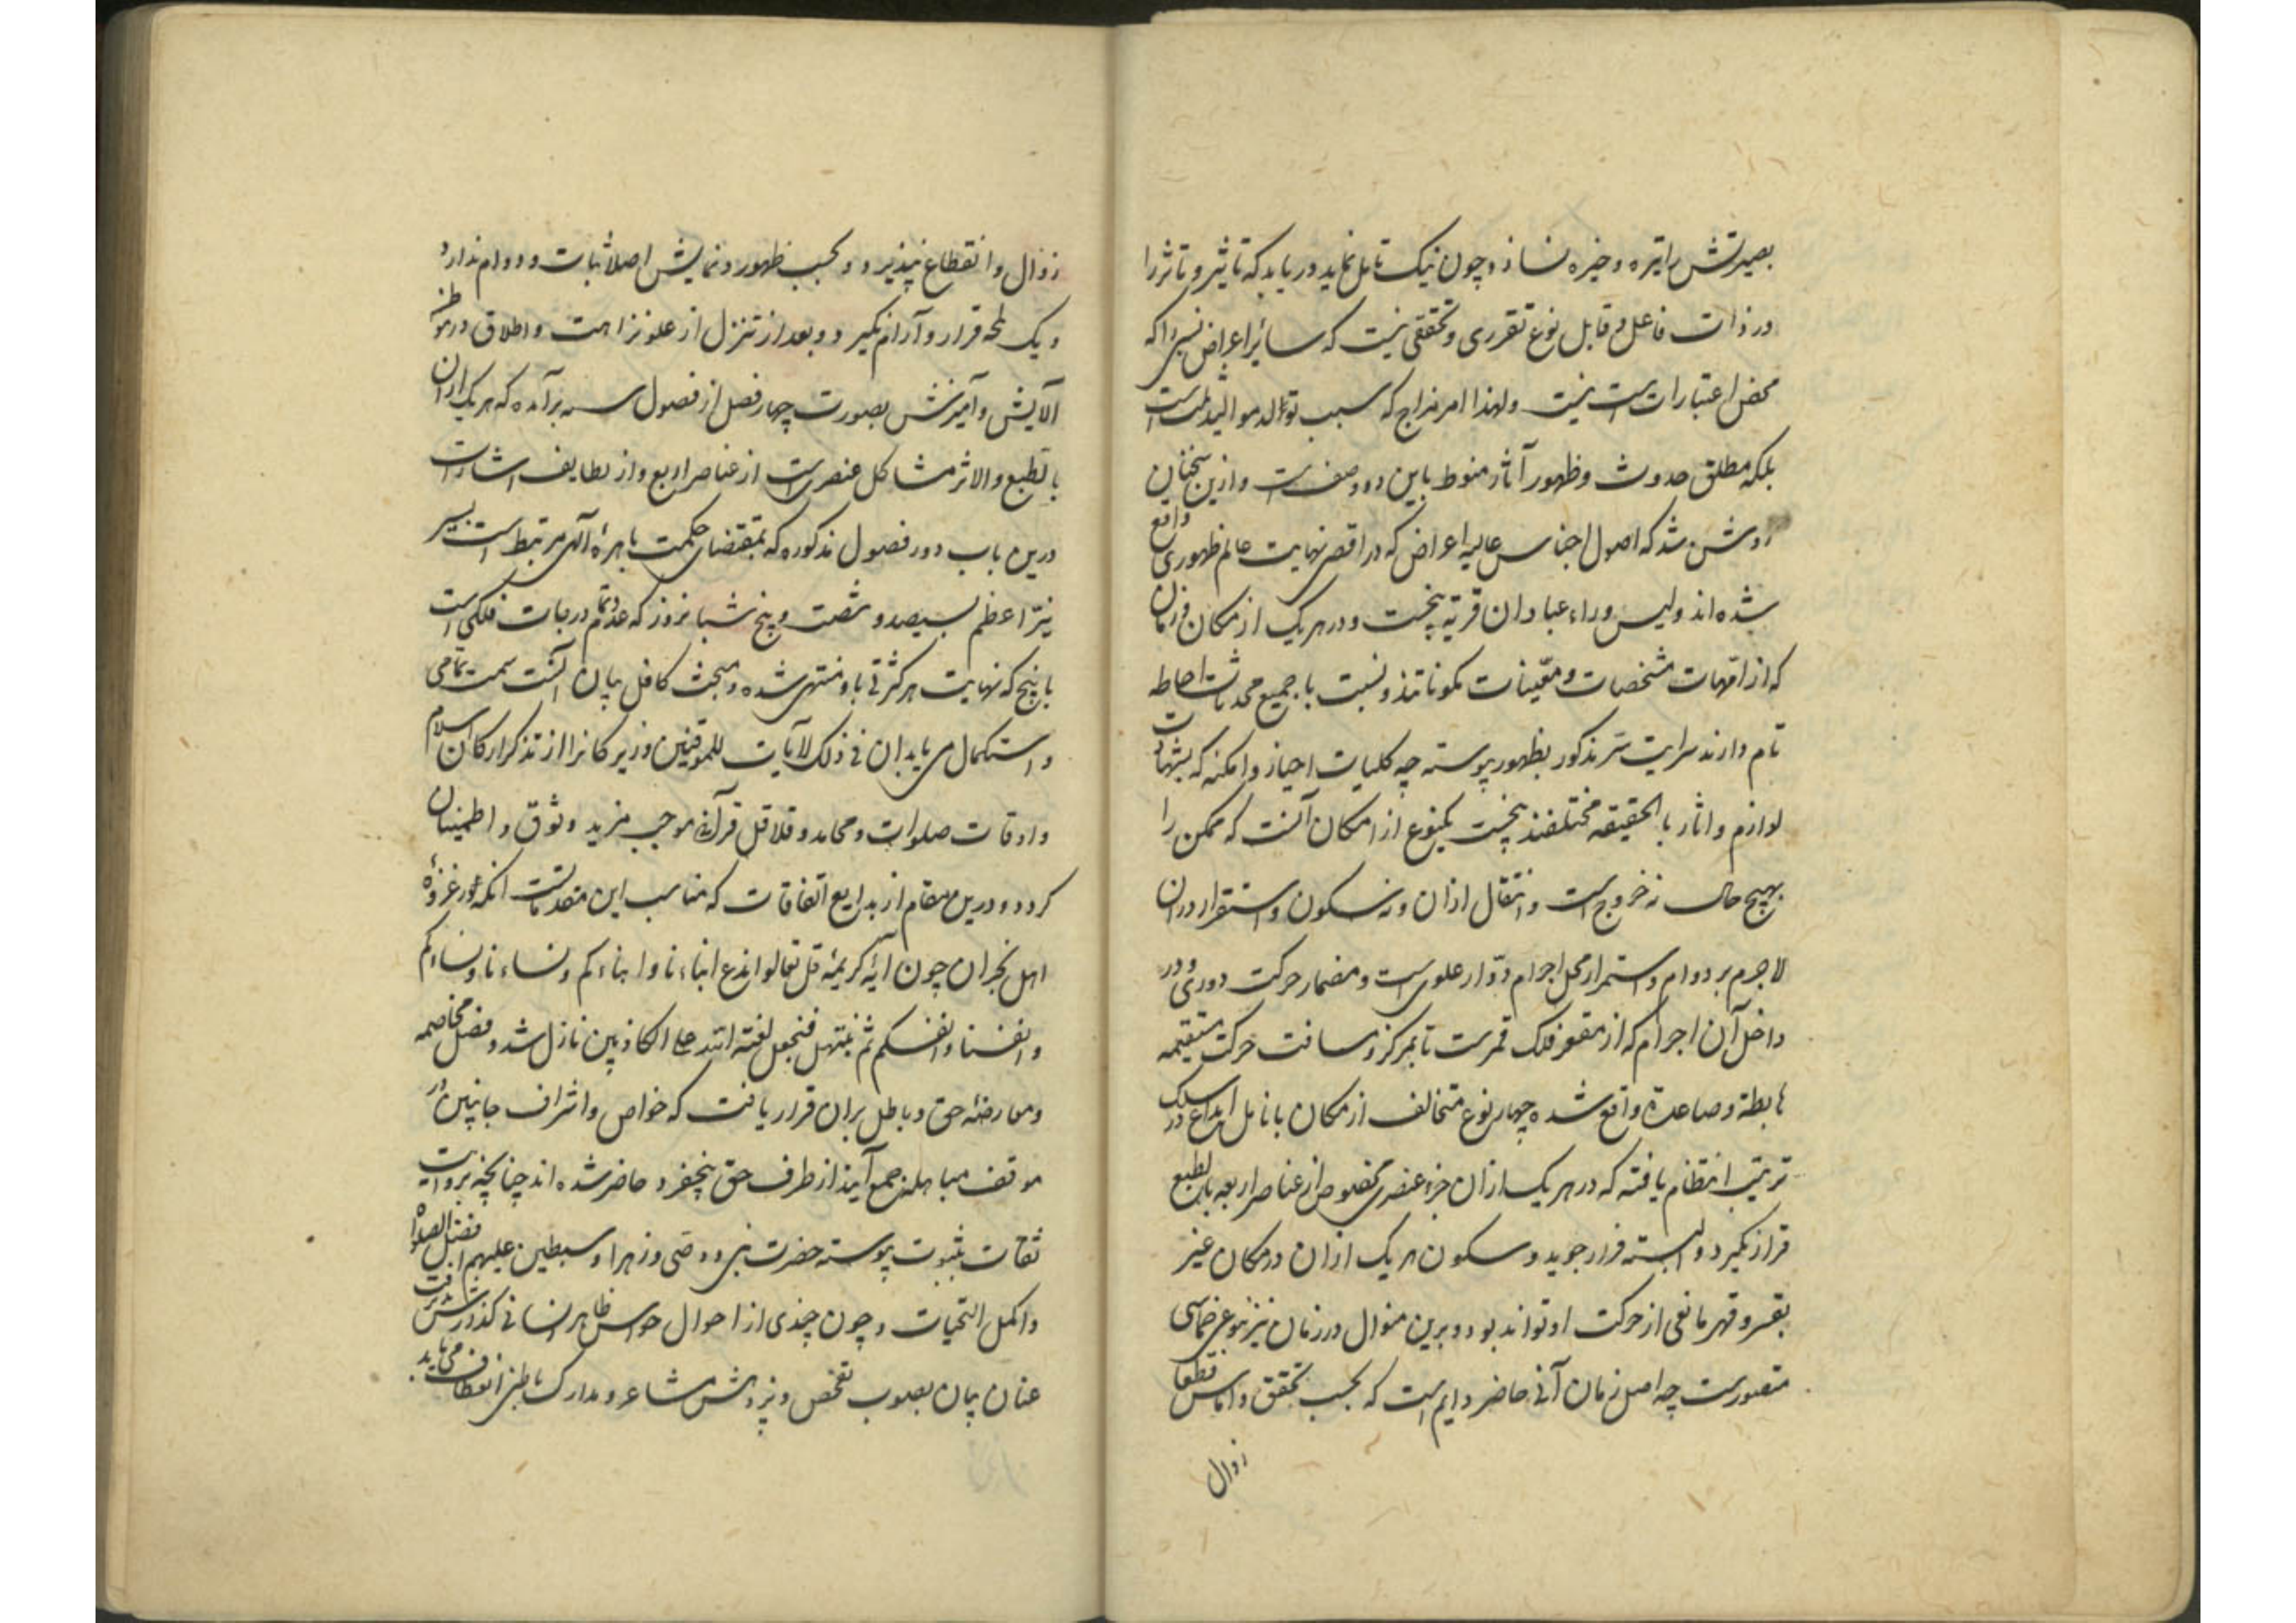 بصیرتش را تیره و خیره نسازد و چون نیک تامل نماید دریابد که تاثیر و تاثر را
در ذات فاعل و قابل نوع تقرری و تحققی نیست که سائر اعراض نسبی را که
محض اعتبارات است نیست ولهذا امر مزاج که سبب تولد موالید ثلث است
بلکه مطلق حدوث و ظهور آثار منوط باین دو وصف است و ازین سخنان
روشن شد که اصول اجناس عالیه اعراض که در اقصی نهایت عالم ظهوری واقع
شده اند ولیس وراء عبادان قریة پنجست و در هر یک از مکان و زمان
که از امّهات مشخصات و معیّنات مکوناتند و نسبت با جمیع محدثات احاطه
تام دارند سرایت سرّ مذکور بظهور پیوسته چه کلیات احیاز و امکنه که بشهادت
لوازم و اثار بالحقیقه مختلفند پنجست یکنوع از امکان آنست که ممکن را
بهیچ حال نه خروج است و انتقال ازان و نه سکون و استقرار دران
لاجرم بر دوام و استمرار محل اجرام دوّار علوی است و مضمار حرکت دوری و در
داخل آن اجرام که از مقعر فلک قمرست تا بمرکز و مسافت حرکت مستقیمه
هابطة و صاعدة واقع شده چهار نوع متخالف از مکان بانامل ابداع در سلک
ترتیب انتظام یافته که در هر یک ازان جزء عنصری مخصوص از عناصر اربعه بالطبع
قرار نگیرد و البسته فرار جوید و سکون هر یک ازان در مکان غیر
بقسر و قهر مانعی از حرکت او تواند بود و برین منوال در زمان نیز تنوع خماسی
متصورست چه اصل زمان آنی حاضر دایم است که بحسب تحقق و اساس قطعا
زوال
زوال و انقطاع نپذیرد و بحسب ظهور و نمایش اصلا ثبات و دوام ندارد
و یک لمحه قرار و آرام نگیرد و بعد از تنزل از علو نزاهت و اطلاق در موطن
آلایش و آمیزش بصورت چهار فصل از فصول سنه برآمده که هر یک ازان
بالطبع والاثر مشاکل عنصری است از عناصر اربع و از لطایف اشارات
درین باب دور فصول مذکوره که بمقتضای حکمت باهرهٔ آلهی مرتبط است بسیر
نیّر اعظم بسیصد و شصت و پنج شبانروز که عدد تمام درجات فلکی است
با پنج که نهایت هر کثرتی باو منتهی شده و مبحث کافل بیان آنست سمت تمامی
و استکمال می یابد ان فی ذلک لآیات للموقنین و زیرکانرا از تذکر ارکان اسلام
و اوقات صلوات و محامد و قلاقل قرآنی موجب مزید وثوق و اطمینان
کردد و درین مقام از بدایع اتفاقات که مناسب این مقدماتست آنکه در غزوهٔ
اهل نجران چون آیه کریمهٔ قل تعالوا ندع ابناءنا و ابناءکم و نساءنا و نساءکم
و انفسنا و انفسکم ثم نبتهل فنجعل لعنة الله علی الکاذبین نازل شد و فصل مخاصمه
و معارضهٔ حق و باطل بران قرار یافت که خواص و اشراف جانبین در
موقف مباهله جمع آیند از طرف حق پنجفرد حاضر شده اند چنانچه بروایت
ثقات بثبوت پیوسته حضرت نبی و وصی و زهرا و سبطین علیهم افضل الصلوات
و اکمل التحیات و چون چندی از احوال حواس ظاهر انسانی گذارش یافت
عنان بیان بصوب تفحص و پژوهش مشاعر و مدارک باطنی انعطاف می یابد